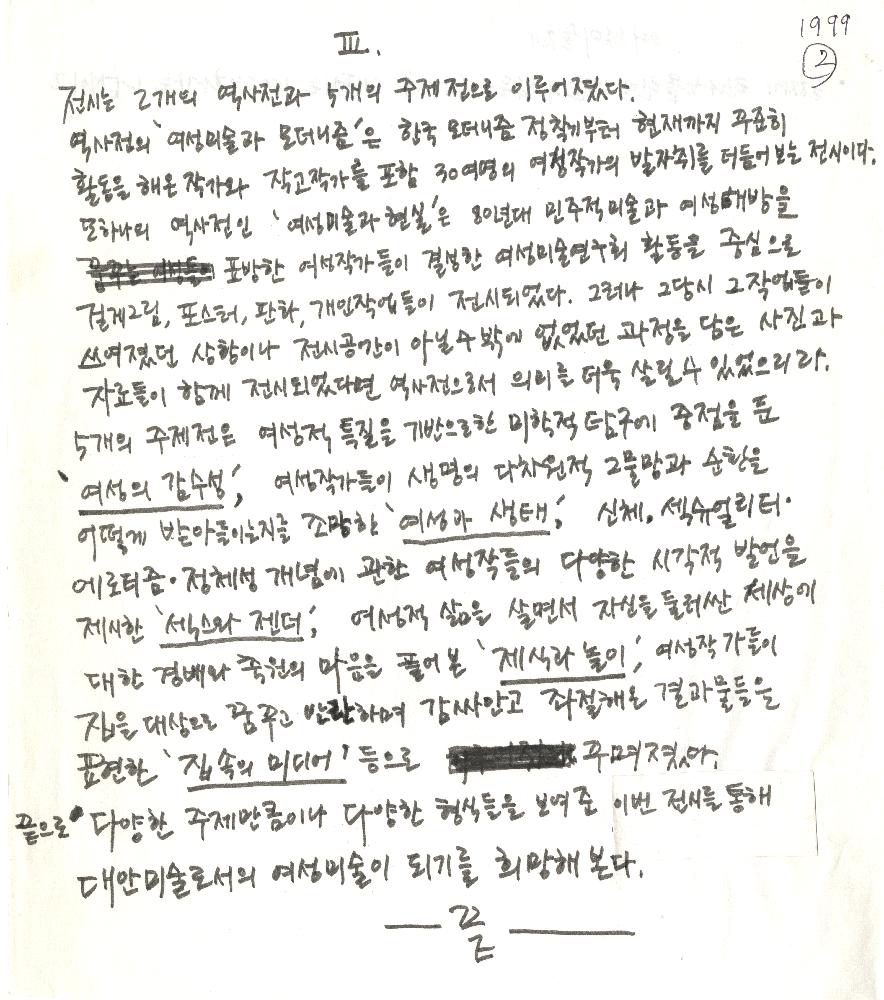 1999
②
Ⅲ.
전시는 2개의 역사전과 5개의 주제전으로 이루어졌다.
역사전의 '여성미술과 모더니즘'은 한국 모더니즘 정착기부터 현재까지 꾸준히
활동을 해온 작가와 작고작가를 포함 30여명의 여성작가의 발자취를 더듬어 보는 전시이다.
또하나의 역사전인 '여성미술과 현실'은 80년대 민주적미술과 여성해방을
표방한 여성작가들이 결성한 여성미술연구회 활동을 중심으로
걸게그림, 포스터, 판화, 개인작업들이 전시되었다. 그러나 그당시 그작업들이
쓰여졌던 상황이나 전시공간이 아닐수밖에 없었던 과정을 담은 사진과
자료들이 함께 전시되었다면 역사전으로서 의미를 더욱 살릴수 있었으리라.
5개의 주제전은 여성적 특질을 기반으로한 미학적 탐구에 중점을 둔
'여성의 감수성', 여성작가들이 생명의 다차원적 그물망과 순환을
어떻게 받아들이는지를 조망한 '여성과 생태', 신체, 섹슈얼리티·
에로티즘·정체성 개념에 관한 여성작들의 다양한 시각적 발언을
제시한 '섹스와 젠더', 여성적 삶을 살면서 자신을 둘러싼 세상에
대한 경배와 축원의 마음을 풀어 본 '제식과 놀이', 여성작가들이
집을 대상으로 꿈꾸고 반란하며 감싸안고 좌절해온 결과물들을
표현한 '집속의 미디어' 등으로 꾸며졌다.
끝으로 다양한 주제만큼이나 다양한 형식들을 보여준 이번 전시를 통해
대안미술로서의 여성미술이 되기를 희망해 본다.
— 끝 —